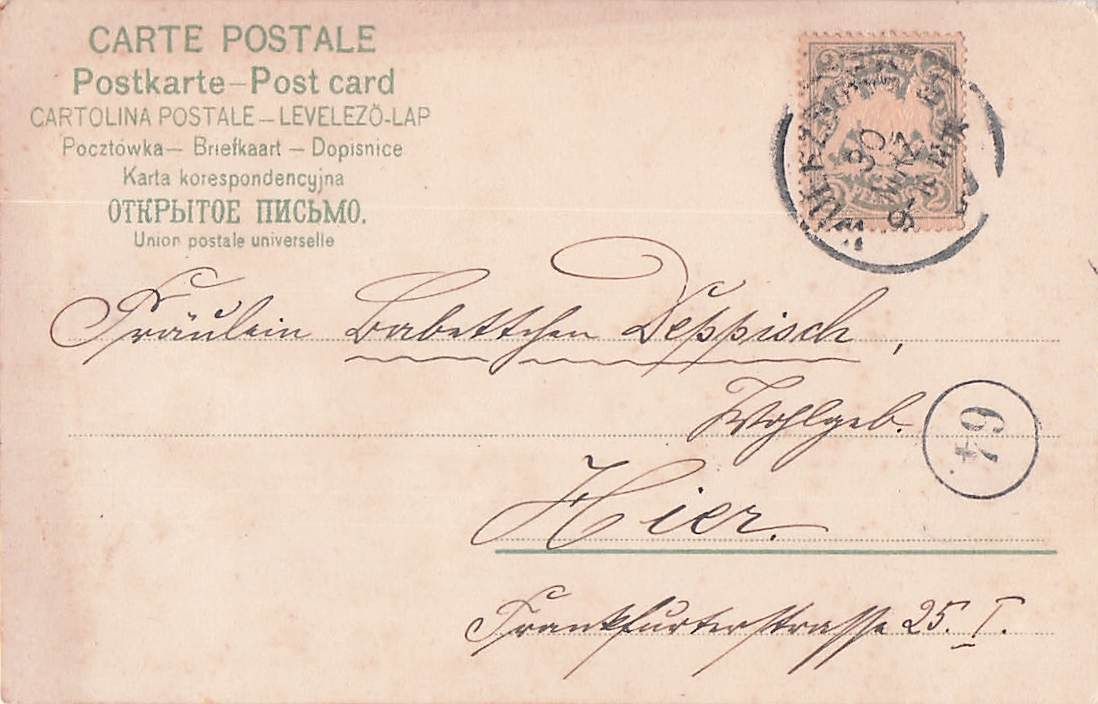 CARTE POSTALE
Postkarte – Post card
CARTOLINA POSTALE – LEVELEZŐ-LAP
Pocztówka – Briefkaart – Dopisnice
Karta korespondencyjna
ОТКРЫТОЕ ПИСЬМО.
Union postale universelle
2 2
30
2 2
Fräulein Babettchen Deppisch,
Wohlgeb.
64
Hier.
Frankfurterstrasse 25. I.